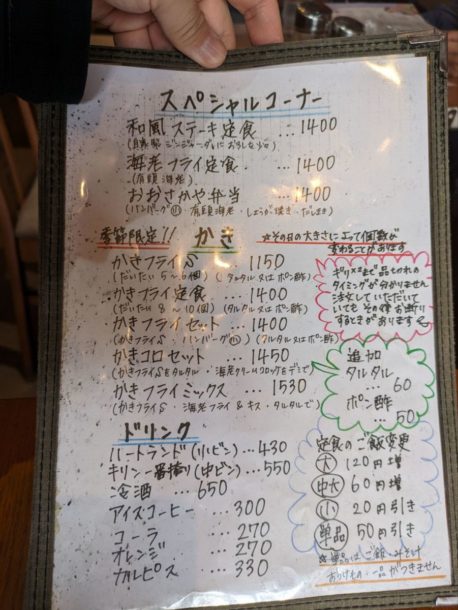 スペシャルコーナー
和風ステーキ定食 … 1400
海老フライ定食 … 1400
(有頭海老)
おおさかや弁当 … 1400
(ハンバーグ小・有頭海老・しょうが焼き・だしまき)
季節限定!! かき
☆その日の大きさによって個数が
変わることがあります
かきフライS … 1150
(だいたい5~6個)(タルタル又はポン酢)
かきフライ定食 … 1400
(だいたい8~10個)(タルタル又はポン酢)
かきフライセット … 1400
(かきフライS・ハンバーグ小)(タルタル又はポン酢)
かきコロセット … 1450
(かきフライSをタルタル・海老クリームコロッケをデミで)
かきフライミックス … 1530
(かきフライS・海老フライ&キス・タルタルで)
ギリ××まで品切れの
タイミングが分かりません
注文していただいて
いても その後お断り
するときがあります
追加
タルタル
… 60
ポン酢
… 50
ドリンク
ハートランド(小ビン) … 430
キリン一番搾り(中ビン) … 550
冷酒 … 650
アイスコーヒー … 300
コーラ … 270
オレンジ … 270
カルピス … 330
定食のご飯変更
大 120円増
中大 60円増
小 20円引き
単品 50円引き
☆単品はご飯・みそ汁
おつけもの・一品がつきません